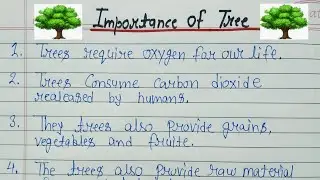 Importance Of Tree
1. Trees require oxygen for our life.
2. Trees Consume Carbon dioxide
realeased by humans.
3. They trees also Provide grains,
vegetables and fruite.
4. The trees also Provide raw material